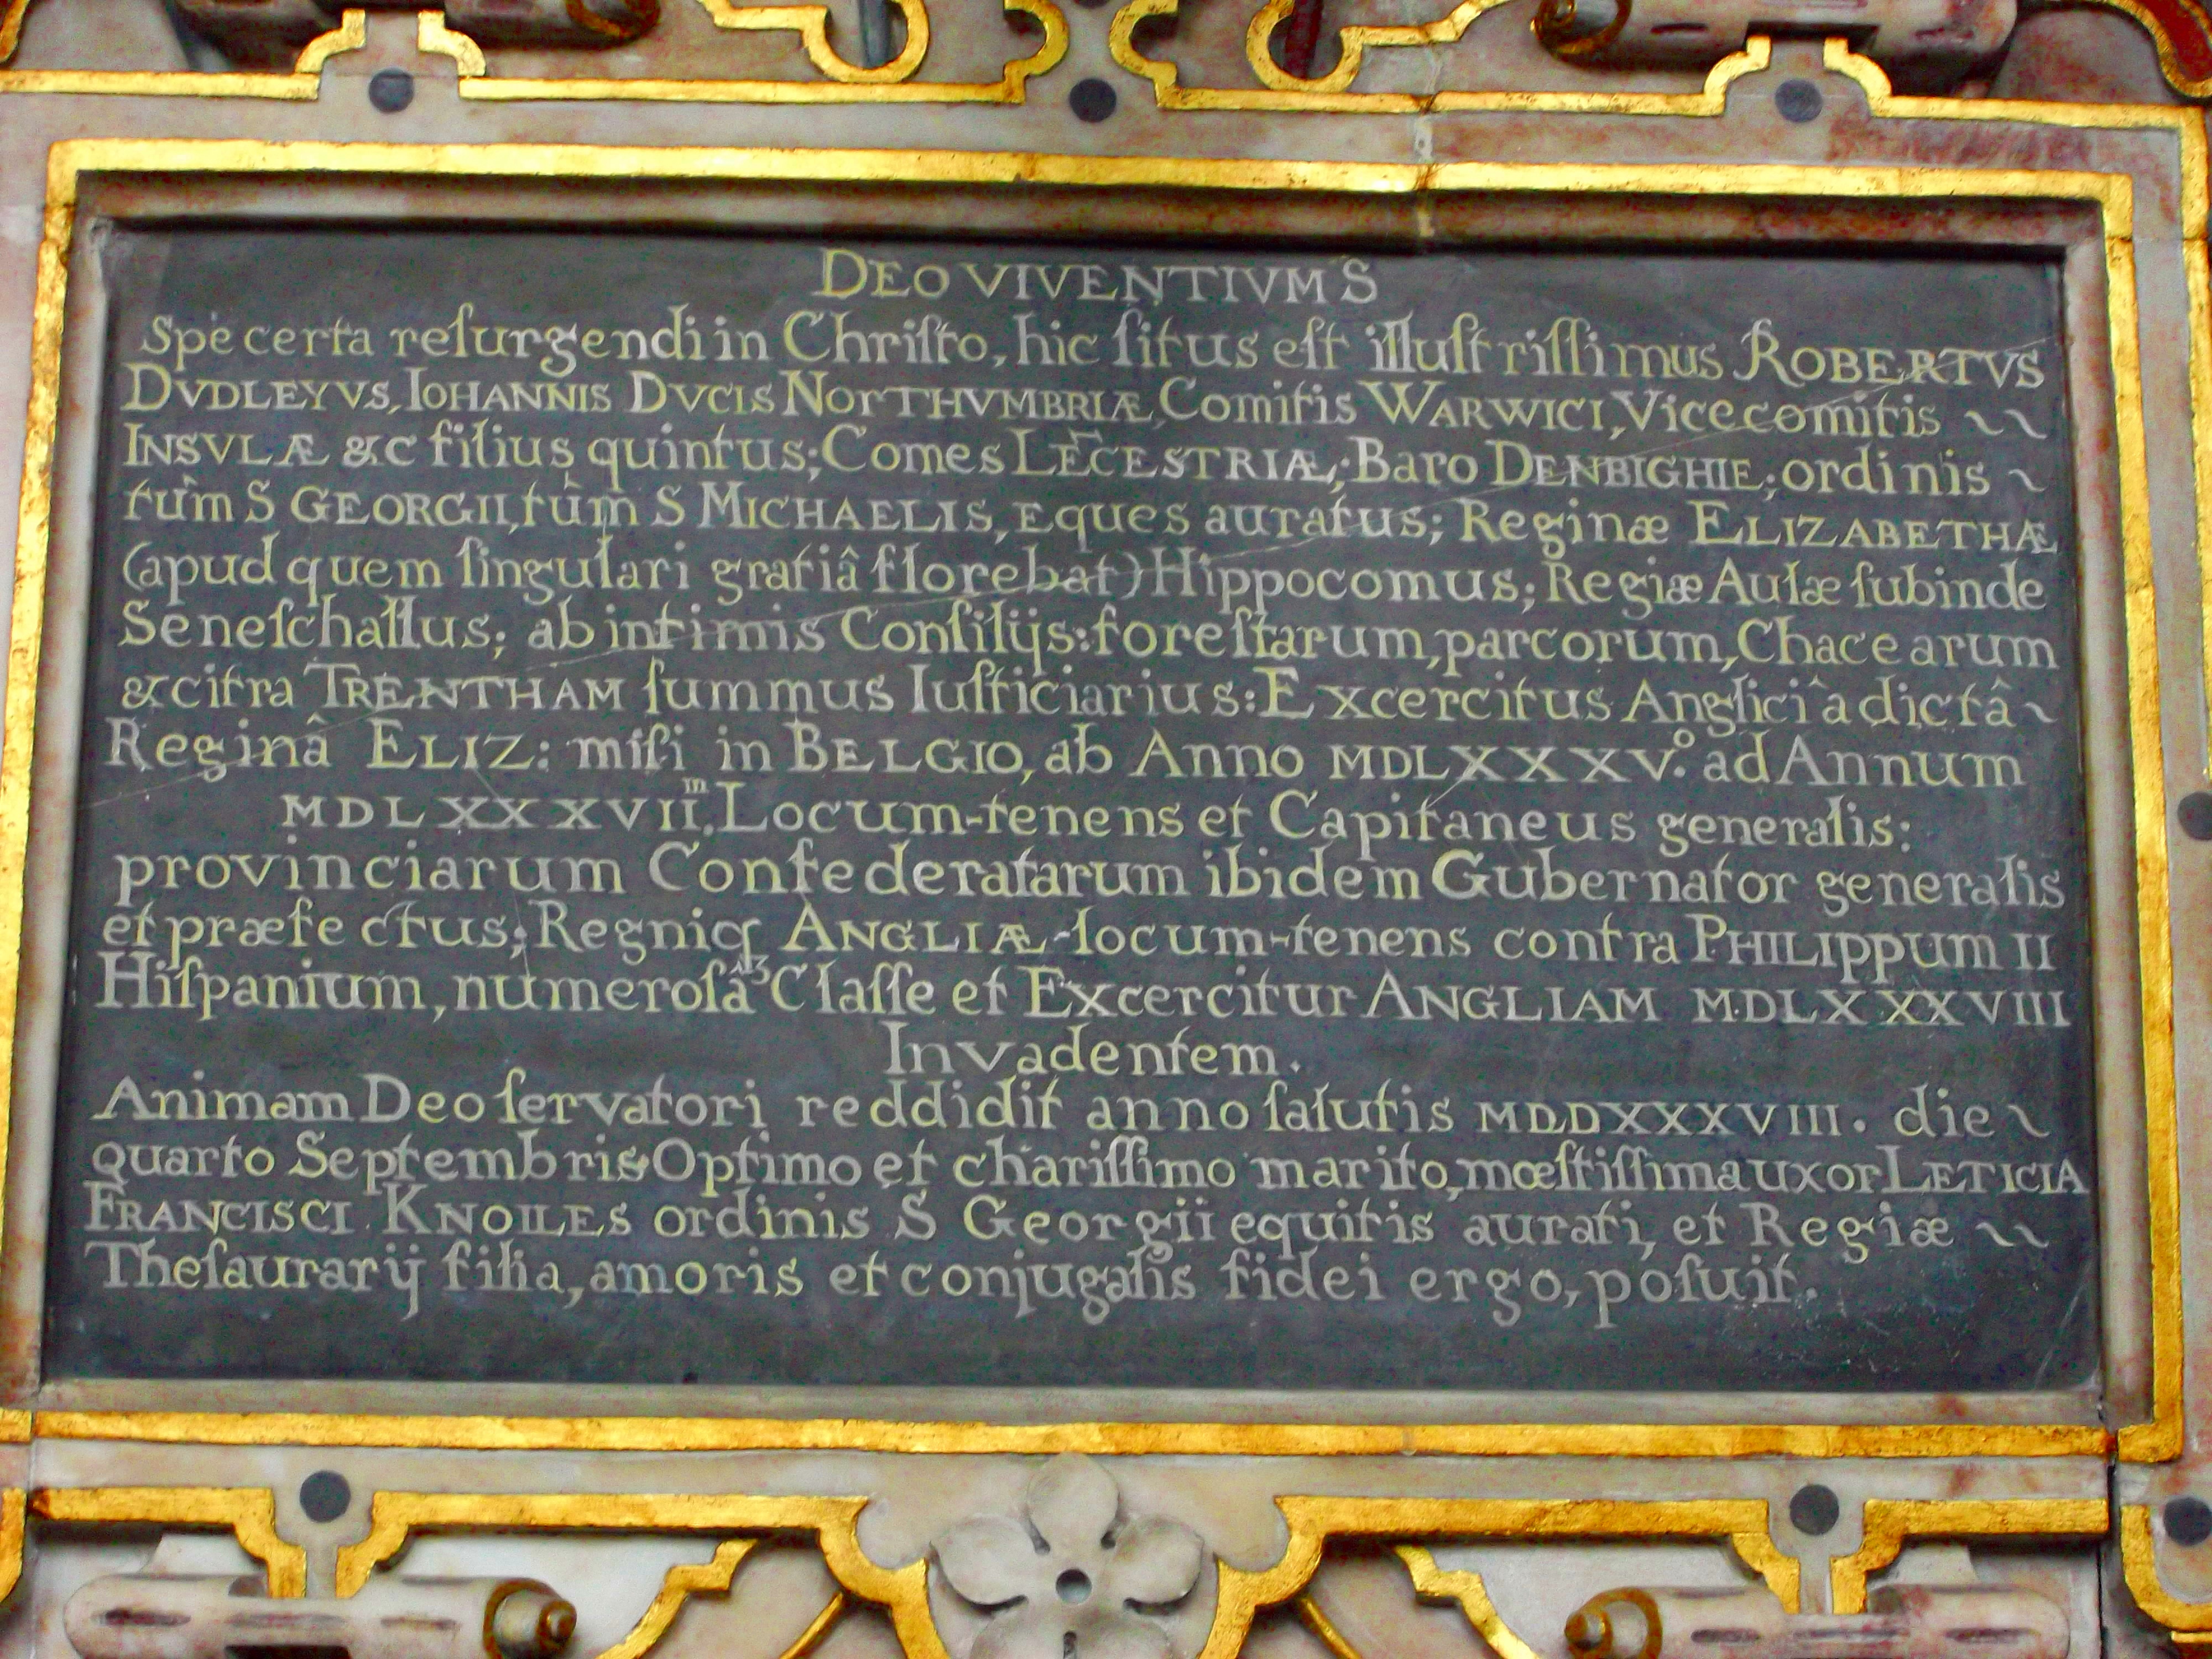 DEO VIVENTIVM S
Spe certa reſurgendi in Chriſto, hic ſitus eſt illuſtriſſimus ROBERTVS
DVDLEYVS, IOHANNIS DVCIS NORTHVMBRIÆ, Comitis WARWICI, Vicecomitis ~~
INSVLÆ &c filius quintus; Comes LEC̄ESTRIÆ; Baro DENBIGHIE; ordinis ~
tùm S GEORGII, tùm S MICHAELIS, Eques auratus; Reginæ ELIZABETHÆ
(apud quem ſingulari gratiâ florebat) Hippocomus; Regiæ Aulæ ſubinde
Seneſchallus; ab intimis Conſilijs: foreſtarum, parcorum, Chacearum
&citra TRENTHAM ſummus Iuſticiarius: Excercitus Anglici â dictâ ~
Reginâ ELIZ: miſi in BELGIO, ab Anno MDLXXXV.º ad Annum
MDLXXXVII.ᵐ Locum-tenens et Capitaneus generalis:
provinciarum Confederatarum ibidem Gubernator generalis
et præfectus; Regniq ANGLIÆ-locum-tenens contra PHILIPPUM II
Hiſpanium, numeroſâ Claſſe et Excercitur ANGLIAM MDLXXXVIII
Invadentem.
Animam Deo ſervatori reddidit anno ſalutis MDDXXXVIII. die ~
quarto Septembris. Optimo et chariſſimo marito, mœſtiſſima uxor LETICIA
FRANCISCI KNOLLES ordinis S Georgii equitis aurati, et Regiæ ~~
Theſaurarij filia, amoris et conjugalis fidei ergo, poſuit.